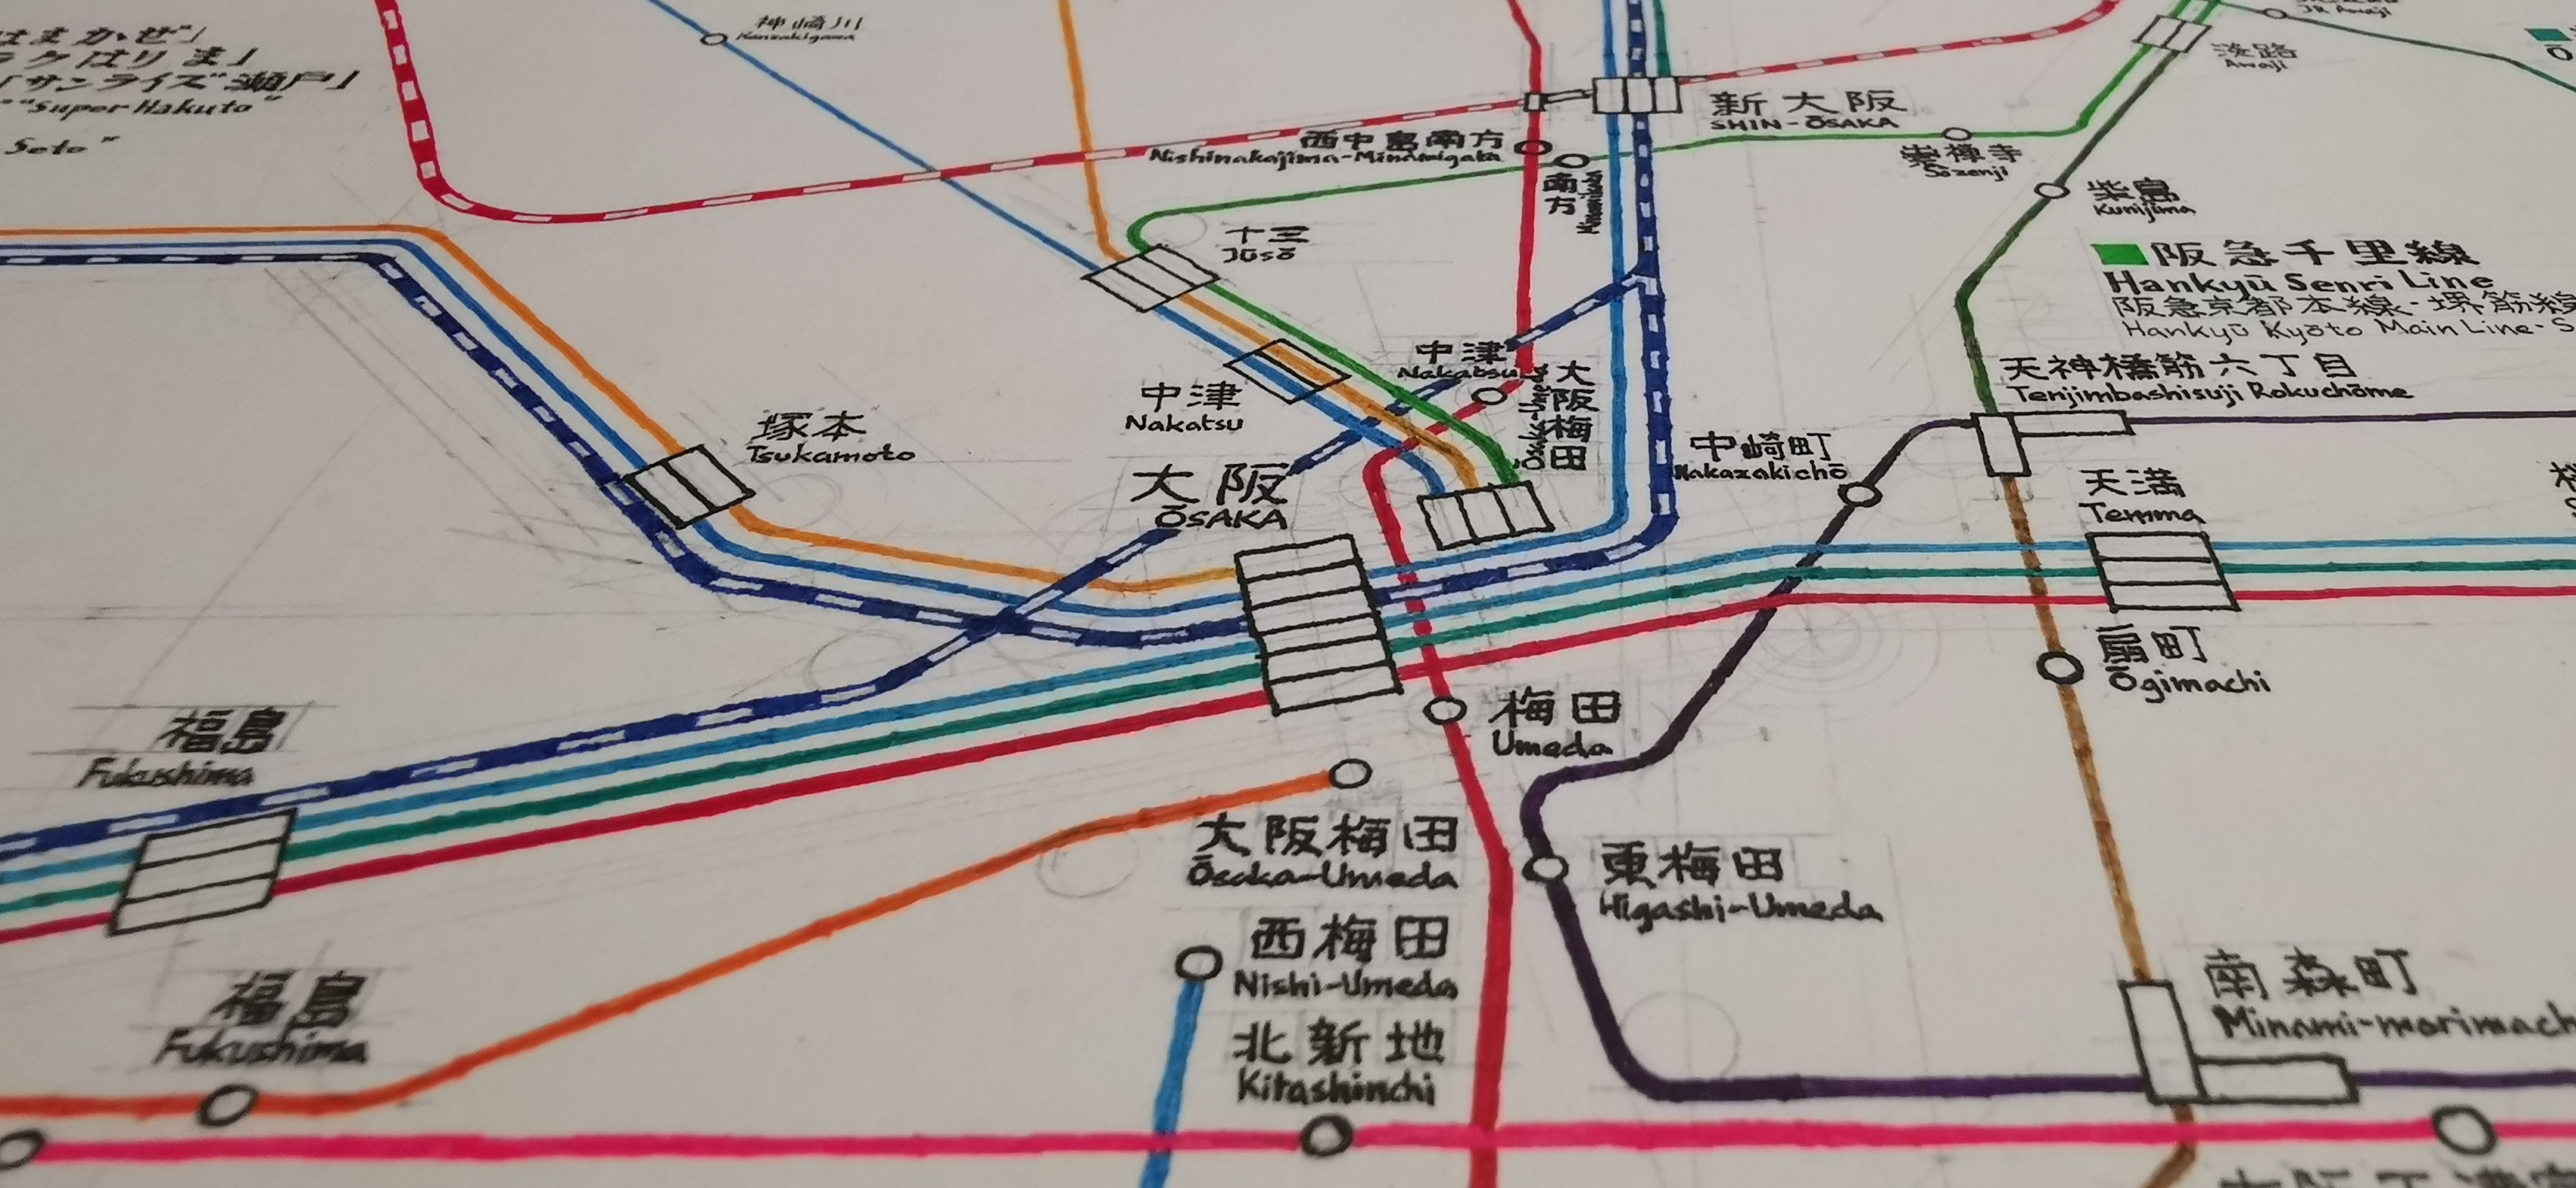 はまかぜ」
ラクはりま」
「サンライズ瀬戸」
"Super Hakuto"
Seto"
神崎川
Kanzakigawa
JR Awaji
淡路
Awaji
新大阪
SHIN-ŌSAKA
西中島南方
Nishinakajima-Minamigata
南方
崇禅寺
Sōzenji
柴島
Kunijima
十三
Jūsō
阪急千里線
Hankyū Senri Line
阪急京都本線・堺筋線
Hankyū Kyōto Main Line-S
中津
Nakatsu
中津
Nakatsu
大阪梅田
Ōsaka-Umeda
天神橋筋六丁目
Tenjimbashisuji Rokuchōme
塚本
Tsukamoto
大阪
ŌSAKA
中崎町
Nakazakichō
天満
Temma
扇町
Ōgimachi
福島
Fukushima
梅田
Umeda
大阪梅田
Ōsaka-Umeda
東梅田
Higashi-Umeda
西梅田
Nishi-Umeda
福島
Fukushima
北新地
Kitashinchi
南森町
Minami-morimach